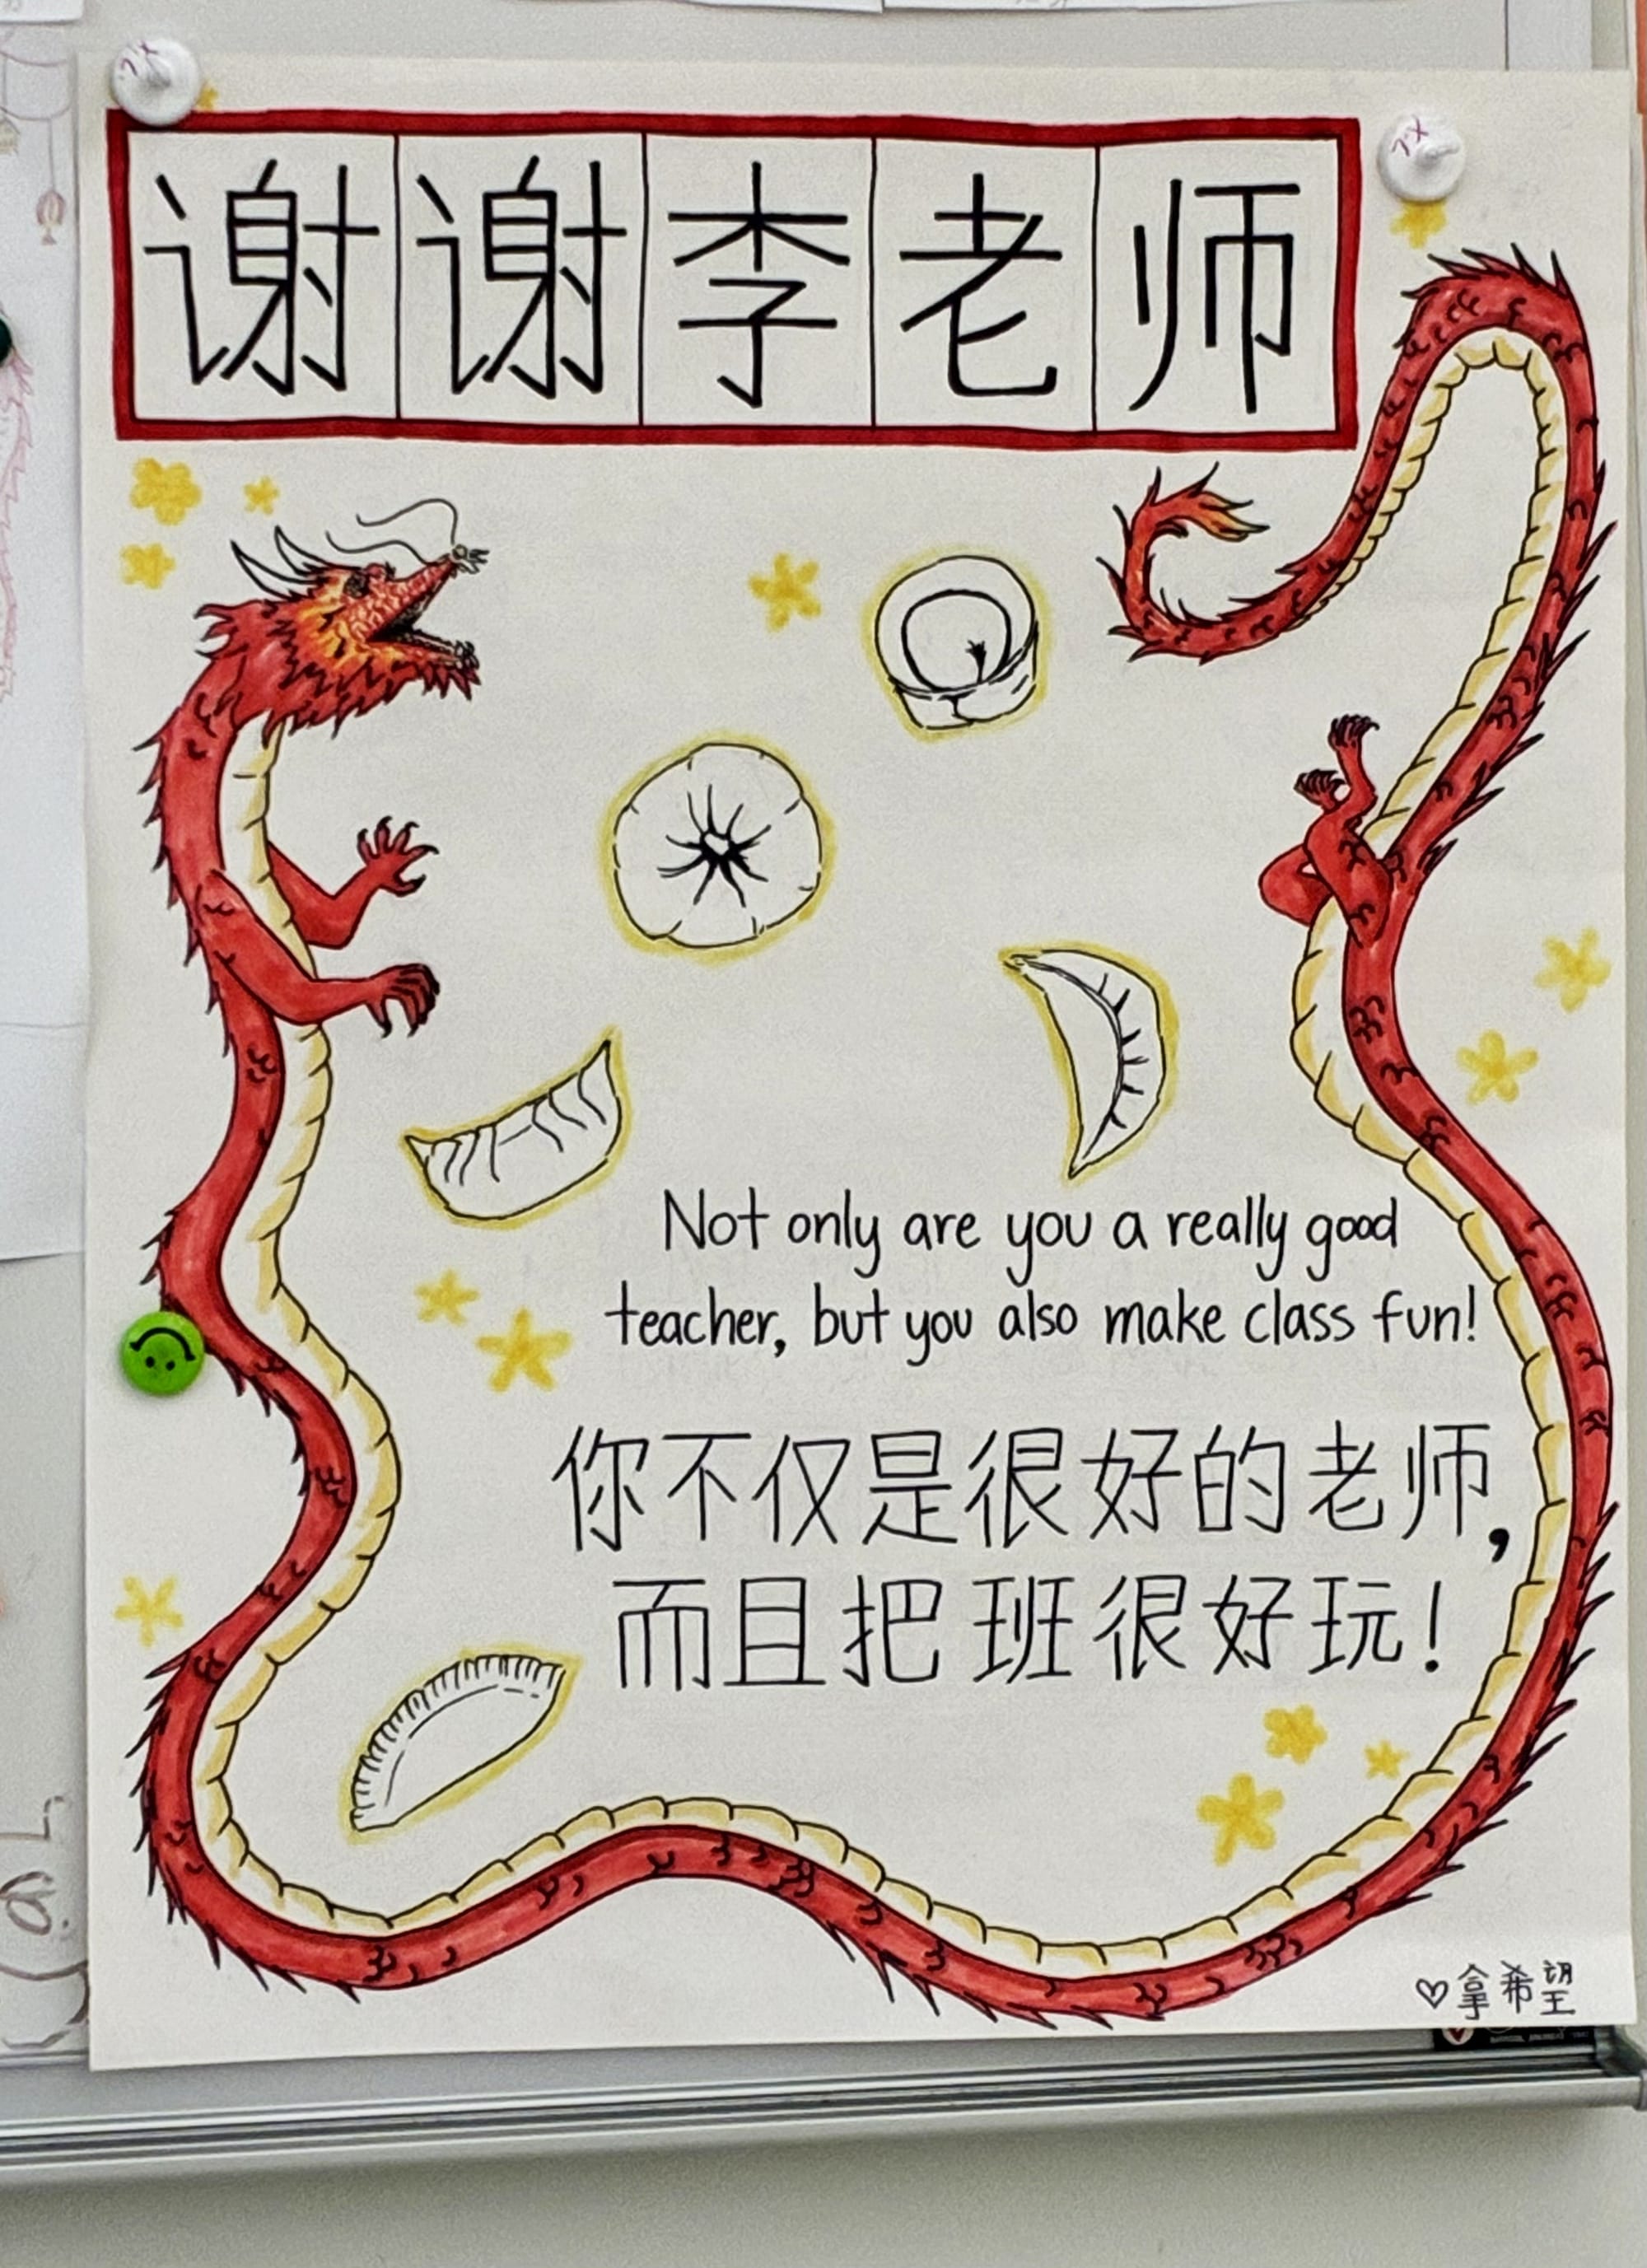 谢谢李老师
Not only are you a really good
teacher, but you also make class fun!
你不仅是很好的老师,
而且把班很好玩!
♡拿希望